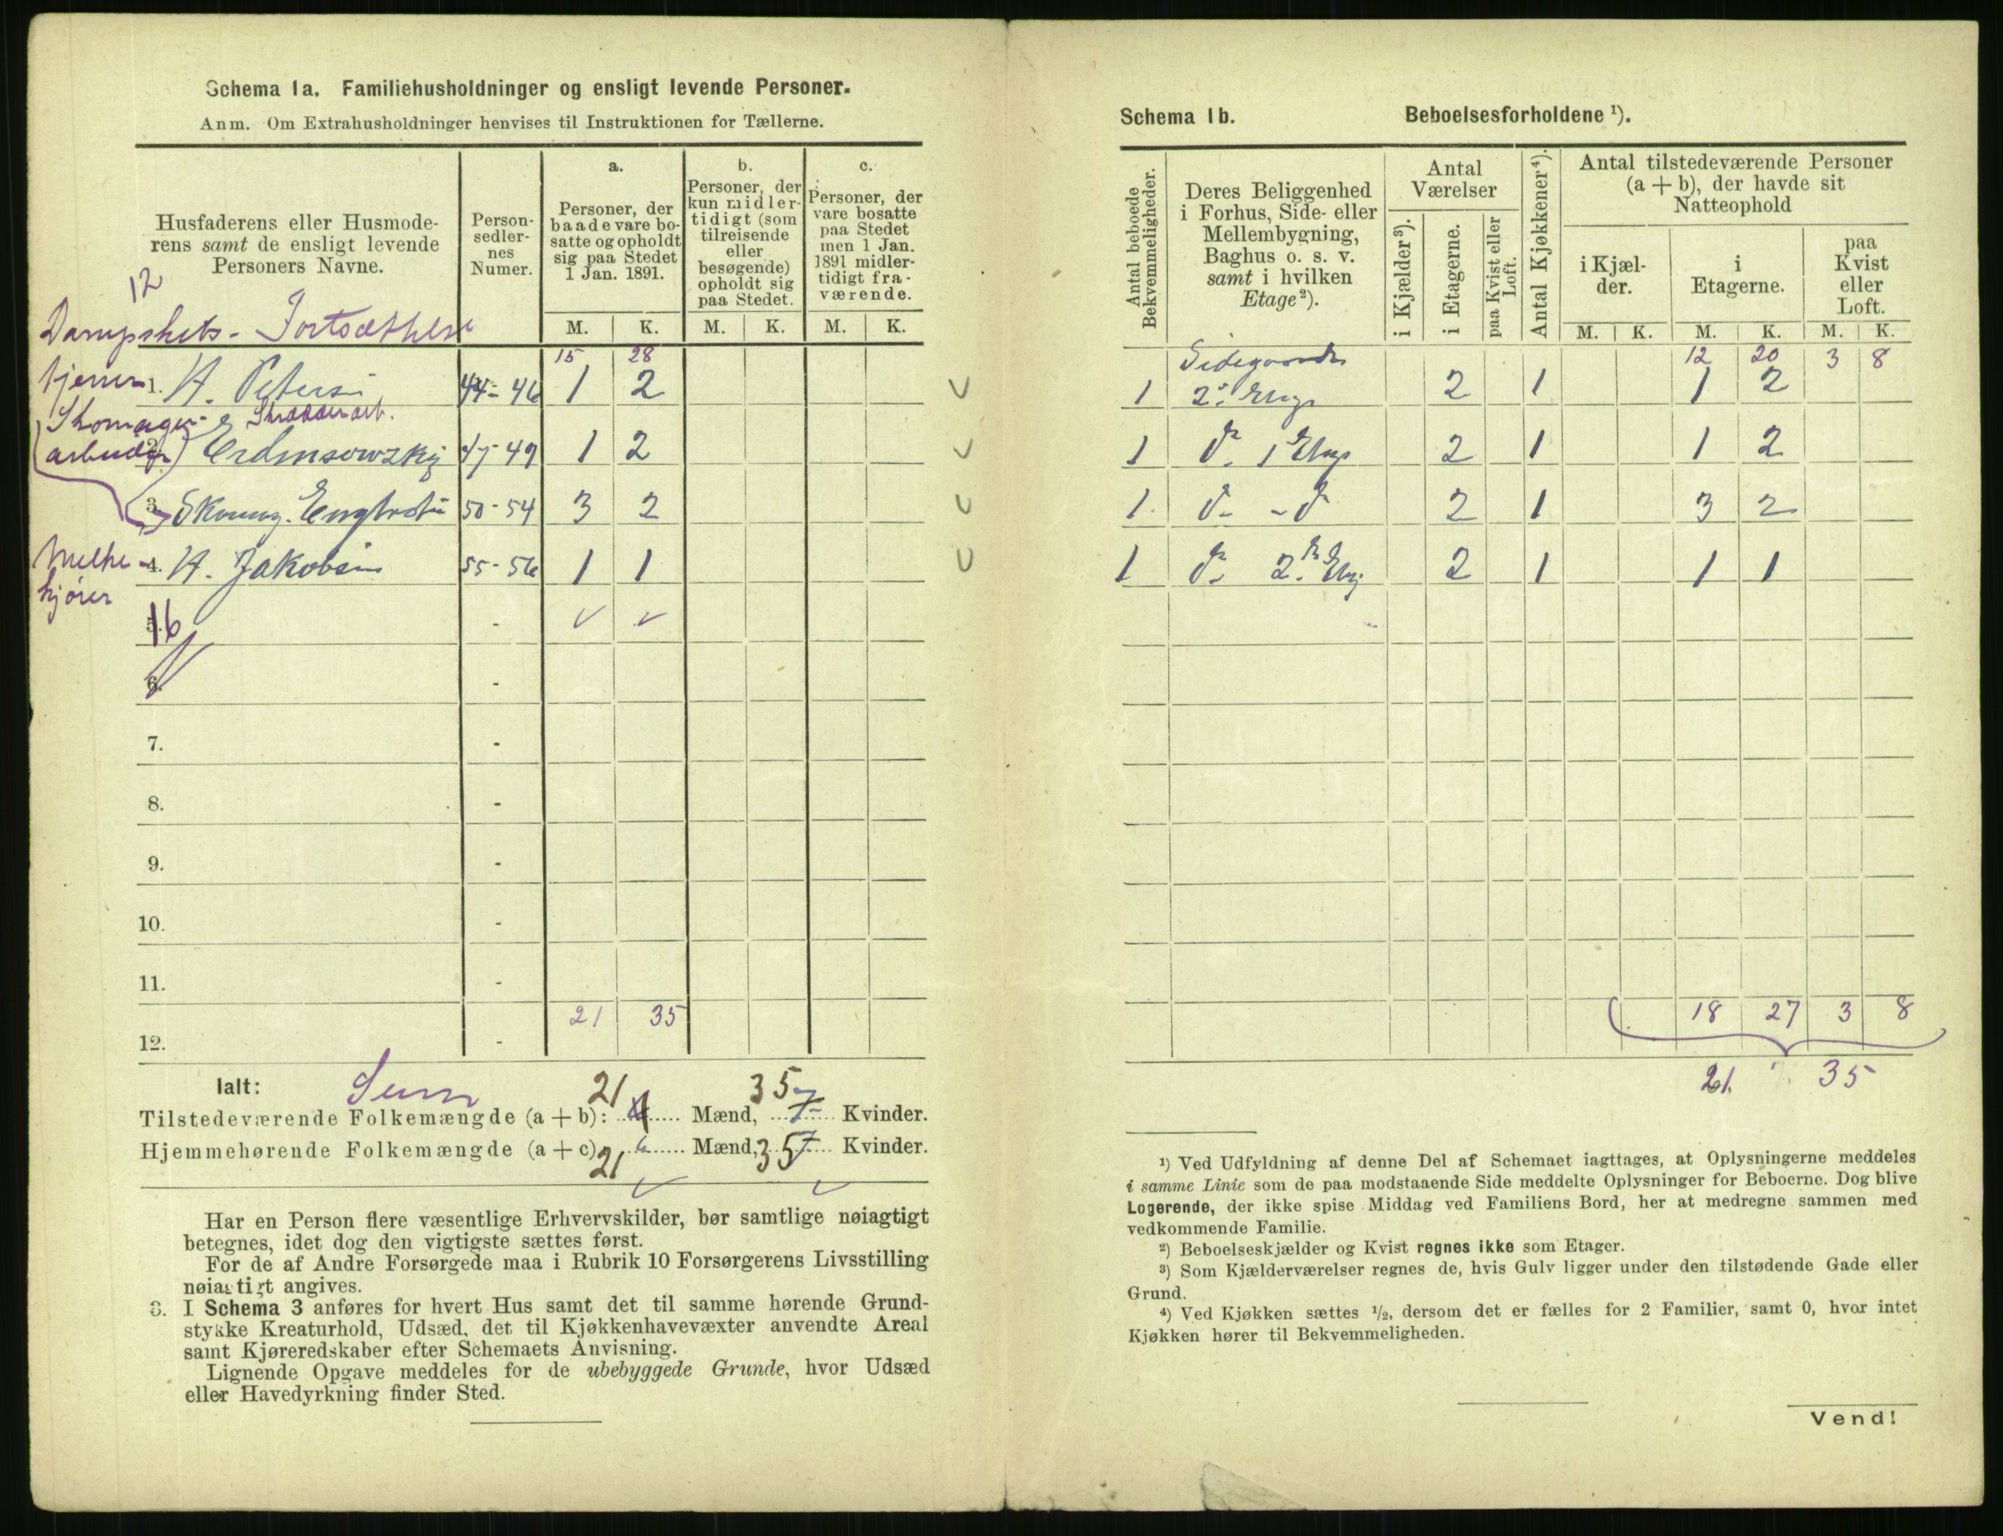 Schema 1a. Familiehusholdninger og ensligt levende Personer.
Anm. Om Extrahusholdninger henvises til Instruktionen for Tællerne.
Husfaderens eller Husmode-
rens samt de ensligt levende
Personers Navne.
Person-
sedler-
nes
Numer.
a.
Personer, der
baade vare bo-
satte og opholdt
sig paa Stedet
1 Jan. 1891.
b.
Personer, der
kun midler-
tidigt (som
tilreisende
eller
besøgende)
opholdt sig
paa Stedet.
c.
Personer, der
vare bosatte
paa Stedet
men 1 Jan.
1891 midler-
tidigt fra-
værende.
M. K. M. K. M. K.
12
Fortsættelse
15 28
1. A. 44-46 1 2
2. 47-49 1 2
3. 50-54 3 2
Melke-
kjører
4. A. Jakobsen 55-56 1 1
16
5. -
6. -
7. -
8. -
9. -
10. -
11. -
21 35
12. -
Ialt: Sum
Tilstedeværende Folkemængde (a + b): 21 Mænd, 35 7 Kvinder.
Hjemmehørende Folkemængde (a + c) 21 6 Mænd, 35 7 Kvinder.
Har en Person flere væsentlige Erhvervskilder, bør samtlige nøiagtigt
betegnes, idet dog den vigtigste sættes først.
For de af Andre Forsørgede maa i Rubrik 10 Forsørgerens Livsstilling
nøiagtigt angives.
3. I Schema 3 anføres for hvert Hus samt det til samme hørende Grund-
stykke Kreaturhold, Udsæd, det til Kjøkkenhavevæxter anvendte Areal
samt Kjøreredskaber efter Schemaets Anvisning.
Lignende Opgave meddeles for de ubebyggede Grunde, hvor Udsæd
eller Havedyrkning finder Sted.
Schema 1b. Beboelsesforholdene ¹).
Antal beboede
Bekvemmeligheder.
Deres Beliggenhed
i Forhus, Side- eller
Mellembygning,
Baghus o. s. v.
samt i hvilken
Etage ²).
Antal
Værelser
i Kjælder ³).
i Etagerne.
paa Kvist eller
Loft.
Antal Kjøkkener ⁴).
Antal tilstedeværende Personer
(a + b), der havde sit
Natteophold
i Kjæl-
der.
i
Etagerne.
paa
Kvist
eller
Loft.
M. K. M. K. M. K.
12 20 3 8
1 2 Etage 2 1 1 2
1 1 Etage 2 1 1 2
1 2 1 3 2
1 2. Etage 2 1 1 1
18 27 3 8
21. 35
¹) Ved Udfyldning af denne Del af Schemaet iagttages, at Oplysningerne meddeles
i samme Linie som de paa modstaaende Side meddelte Oplysninger for Beboerne. Dog blive
Logerende, der ikke spise Middag ved Familiens Bord, her at medregne sammen med
vedkommende Familie.
²) Beboelseskjælder og Kvist regnes ikke som Etager.
³) Som Kjælderværelser regnes de, hvis Gulv ligger under den tilstødende Gade eller
Grund.
⁴) Ved Kjøkken sættes ¹/₂, dersom det er fælles for 2 Familier, samt 0, hvor intet
Kjøkken hører til Bekvemmeligheden.
Vend!